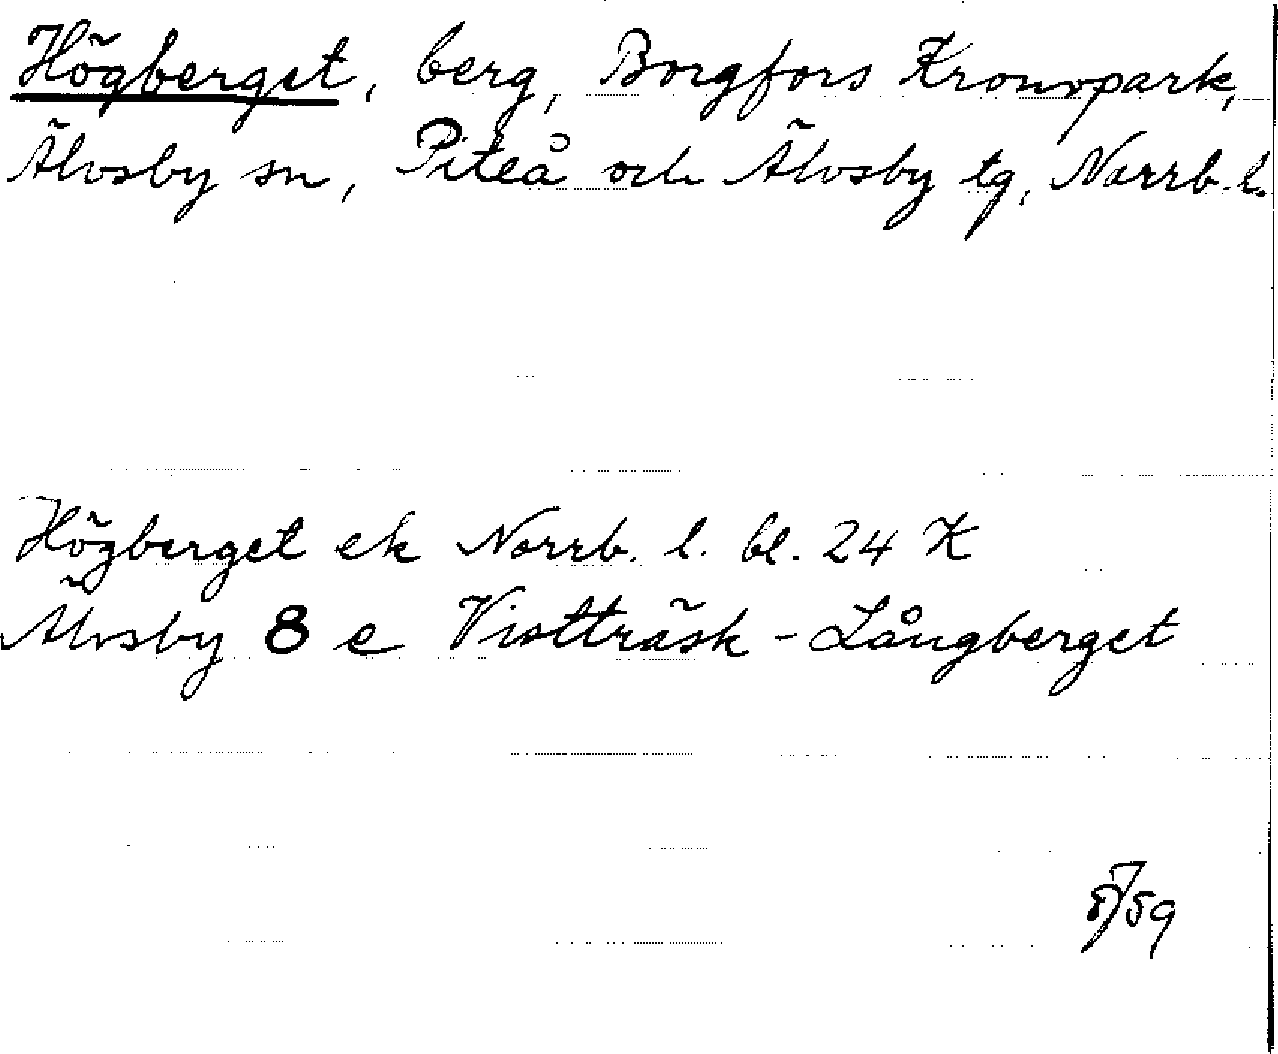 Högberget, berg, Borgfors Kronopark,
Älvsby sn, Piteå och Älvsby tg, Norrb. l.
Högberget ek Norrb. l. bl. 24 K
Älvsby 8 e Vistträsk - Långberget
/59